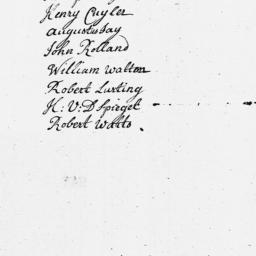 Henry Cuyler
Augustus Jay
John Rolland
William Walton
Robert Lurting
H: V: D Spiegel
Robert Watts